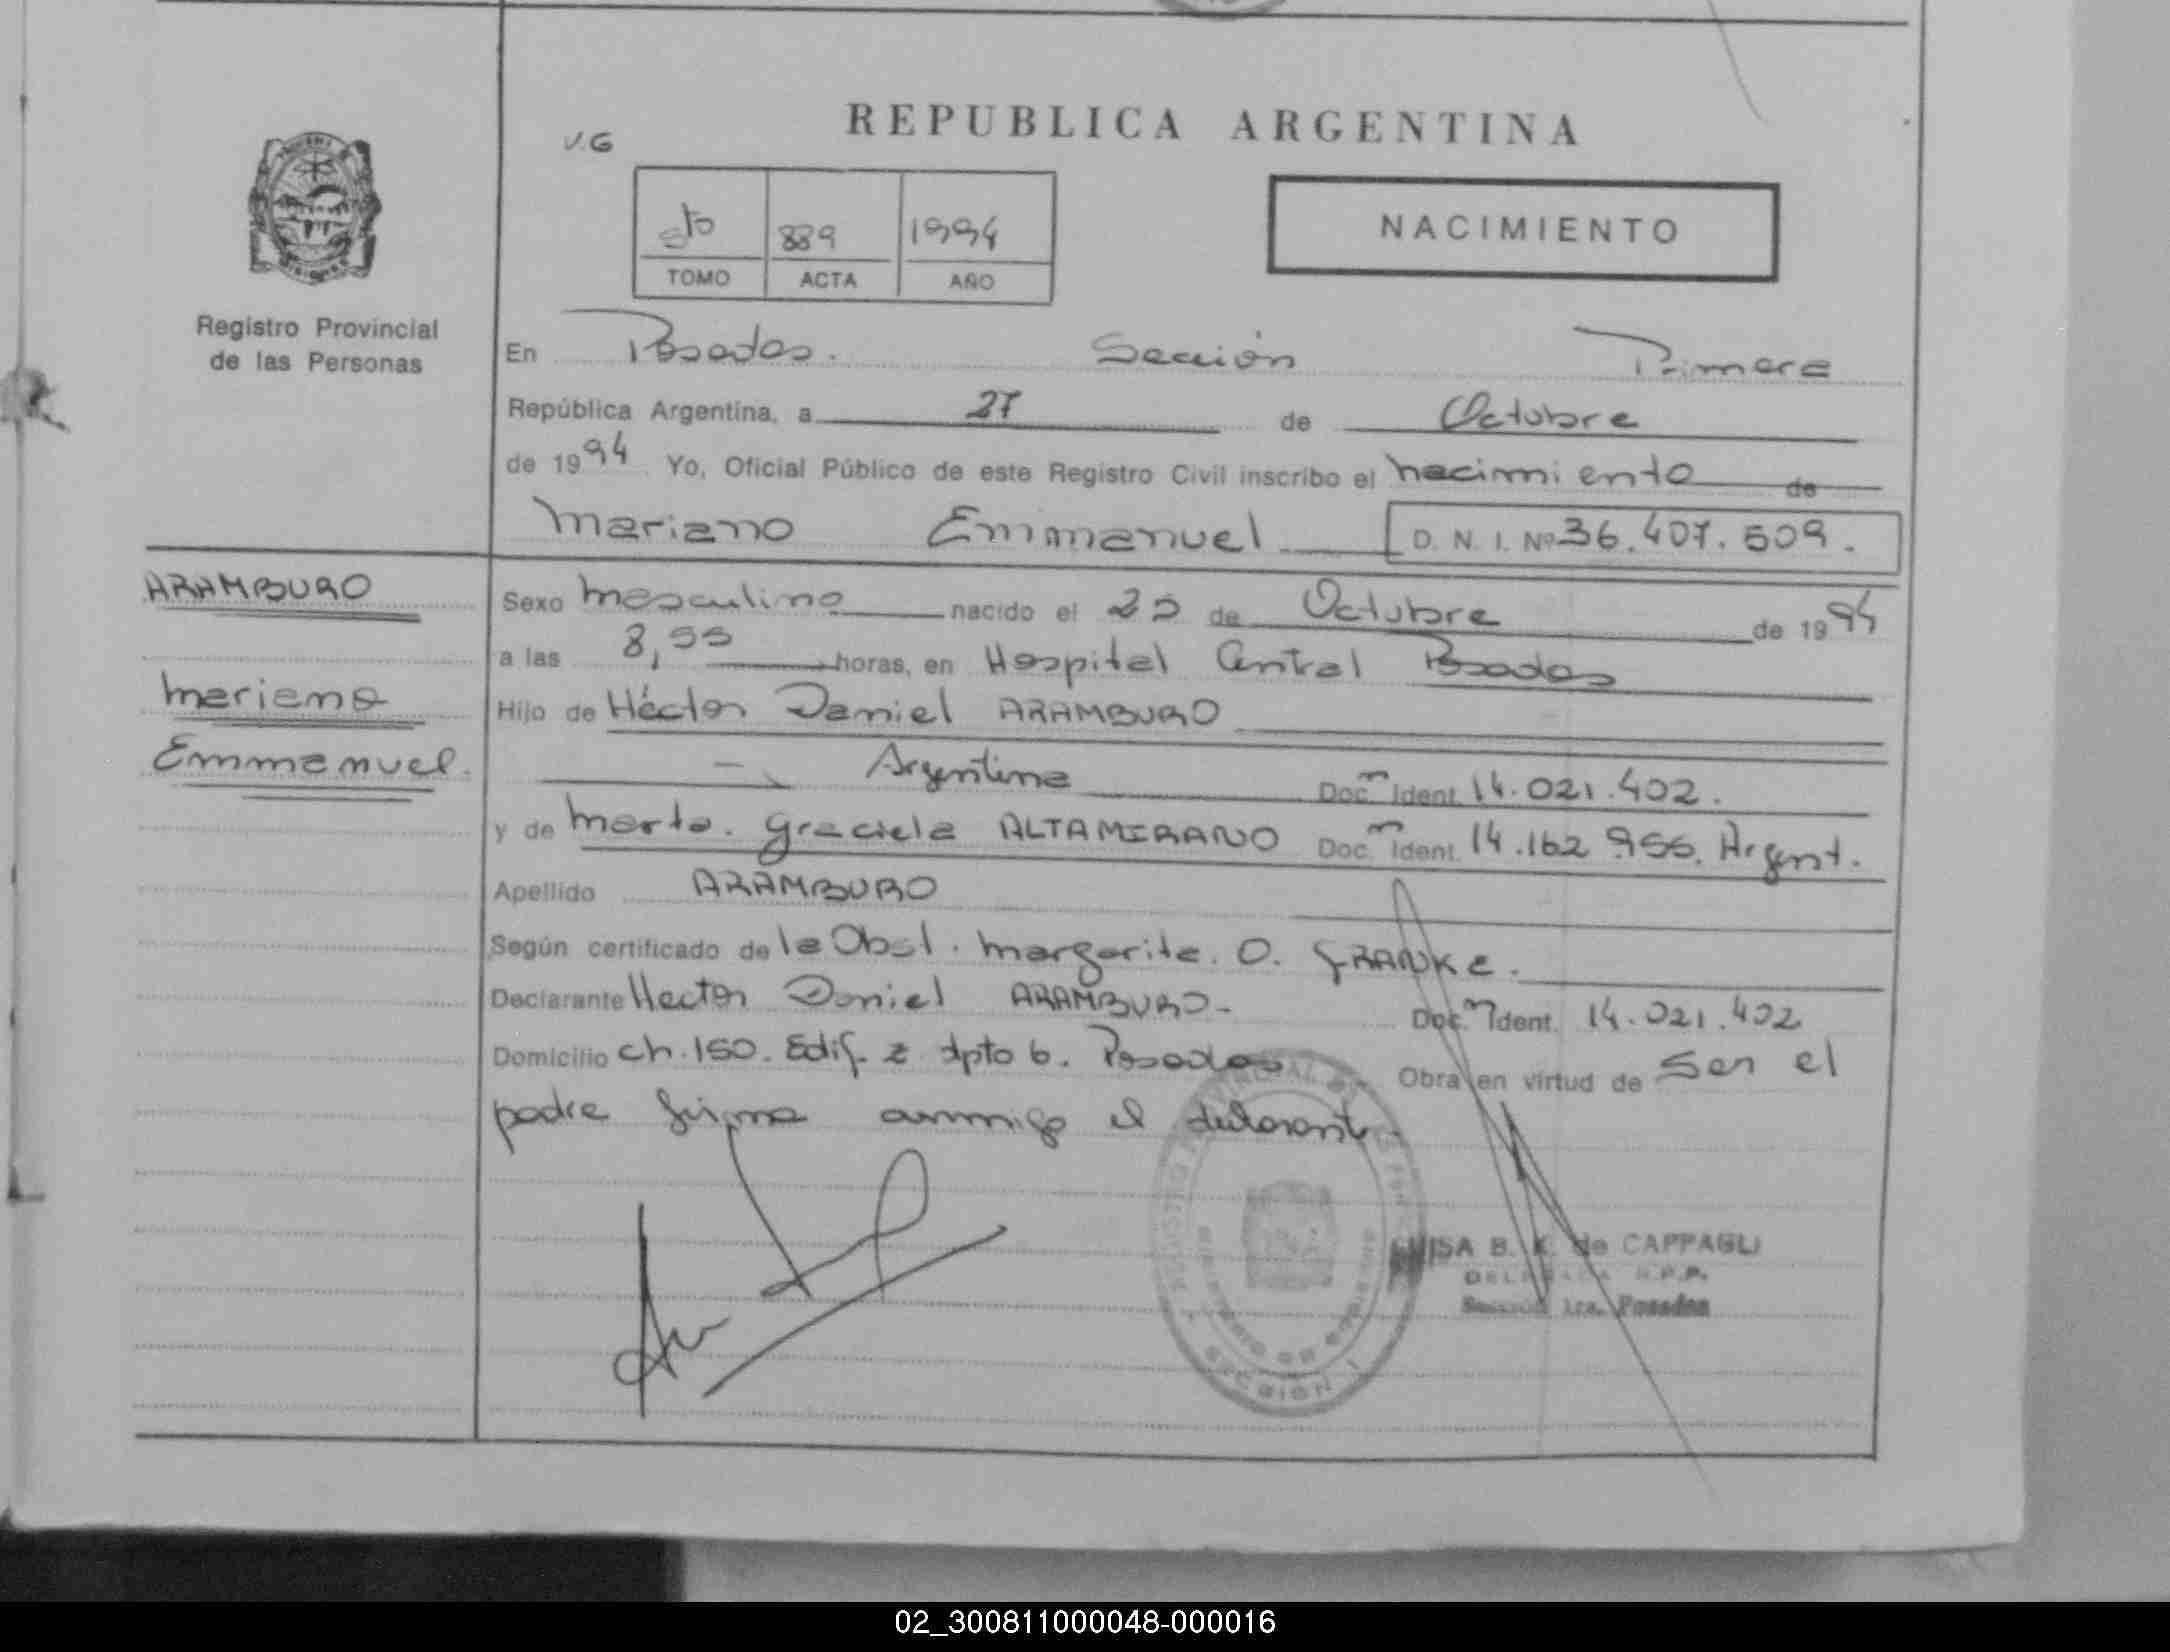 REPUBLICA ARGENTINA
V.G
889 1994
TOMO ACTA AÑO
NACIMIENTO
Registro Provincial
de las Personas
En Posadas. Sección Primera
República Argentina, a 27 de Octubre
de 1994 Yo, Oficial Público de este Registro Civil inscribo el nacimiento de
Mariano Emmanuel D. N. I. Nº 36.407.509.
ARAMBURO
Mariano
Emmanuel.
Sexo masculino nacido el 25 de Octubre de 1994
a las 8,55 horas, en Hospital Central Posadas
Hijo de Héctor Daniel ARAMBURO
Argentina Doc. Ident. 14.021.402.
y de Marta. Graciela ALTAMIRANO Doc. Ident. 14.162.956. Argent.
Apellido ARAMBURO
Según certificado de la Obst. Margarita. O. FRANKE.
Declarante Hector Daniel ARAMBURO- Doc. Ident. 14.021.402
Domicilio Ch.150. Edif. z dpto 6. Posadas Obra en virtud de Ser el
padre firma conmigo el declarante.
LUISA B. K. de CAPPAGLI
DELEGADA R.P.P.
Sección 1ra. Posadas
SECCION 1
02_300811000048-000016